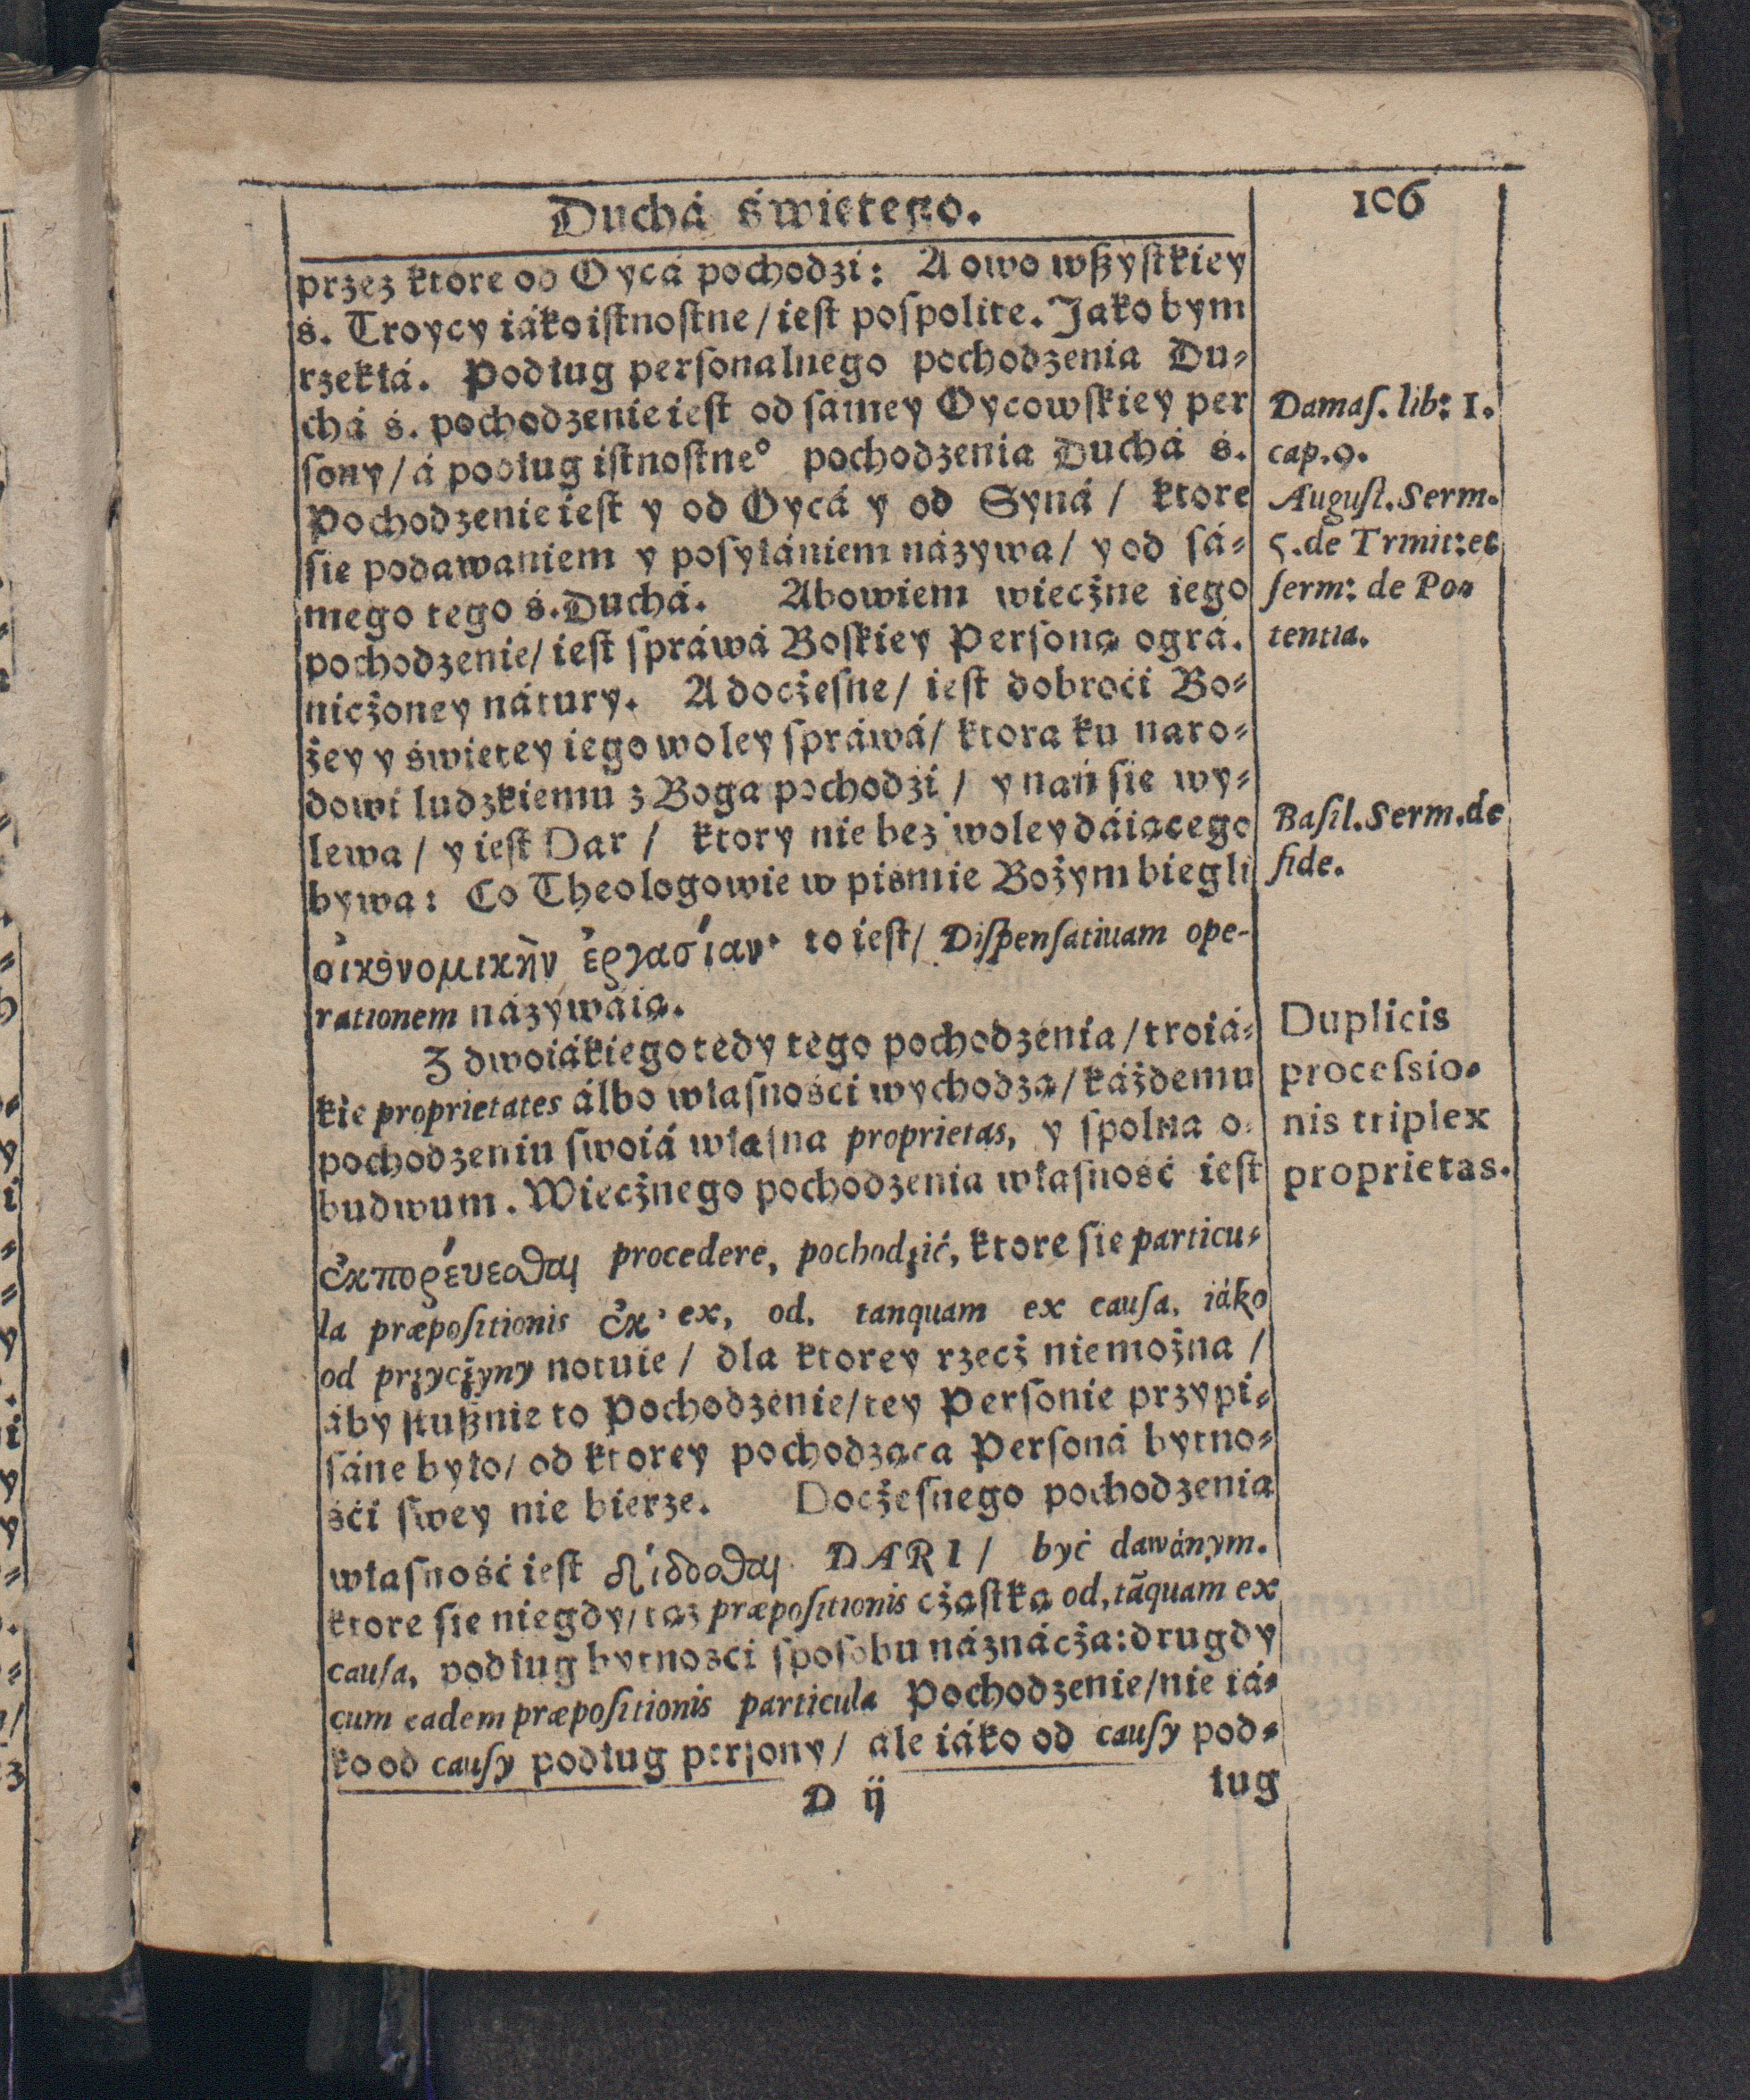 Duchá świętego.
106
przez ktore od Oycá pochodzi: A owo wßyſtkiey
ś. Troycy iáko iſtnoſtne / ieſt poſpolite. Jako bym
rzekłá. Podług perſonalnego pochodzenia Du⸗
chá ś. pochodzenie ieſt od ſamey Oycowſkiey per
ſony / á podług iſtnoſtne° pochodzenia Duchá ś.
Pochodzenie ieſt y od Oycá y od Syná / ktore
ſie podawaniem y poſyłániem názywa / y od ſá⸗
mego tego ś. Duchá. Abowiem wiecżne iego
pochodzenie / ieſt ſpráwá Boſkiey Perſoną ográ.
nicżoney nátury. A docżeſne / ieſt dobroći Bo⸗
żey y świętey iego woley ſpráwá / ktora ku naro⸗
dowi ludzkiemu z Boga pochodźi / y nań ſie wy⸗
lewa / y ieſt Dar / ktory nie bez woley dáiącego
bywa: Co Theologowie w piśmie Bożym biegli
οἰκονομικὴν ἐργασίαν· to ieſt / Diſpenſatiuam ope-
rationem názywáią.
Z dwoiákiego tedy tego pochodzenia / troiá⸗
kie proprietates álbo właſnośći wychodzą / káżdemu
pochodzeniu ſwoiá właſna proprietas, y ſpolna o⸗
budwum. Wiecżnego pochodzenia właſność ieſt
ἐκπορέυεσθαι procedere, pochodzić, ktore ſie particu⸗
la præpoſitionis ἐκ· ex, od. tanquam ex cauſa, iáko
od przycżyny notuie / dla ktorey rzecż niemożna /
áby ſłußnie to Pochodzenie / tey Perſonie przypi⸗
ſáne było / od ktorey pochodząca Perſoná bytno⸗
śći ſwey nie bierze. Docżeſnego pochodzenia
właſność ieſt δίδοσθαι DARI / być dawánym.
ktore ſie niegdy / taż præpoſitionis cżąſtką od, tāquam ex
cauſa, podług bytnośći ſpoſobu náznácża: drugdy
cum eadem præpoſitionis particula Pochodzenie / nie iá⸗
ko od cauſy podług perſony / ále iáko od cauſy pod⸗
D ij
ług
Damaſ. lib: 1.
cap. 9.
Auguſt. Serm.
5. de Trinit: et
ſerm: de Po⸗
tentia.
Baſil. Serm. de
fide.
Duplicis
proceſsio⸗
nis triplex
proprietas.